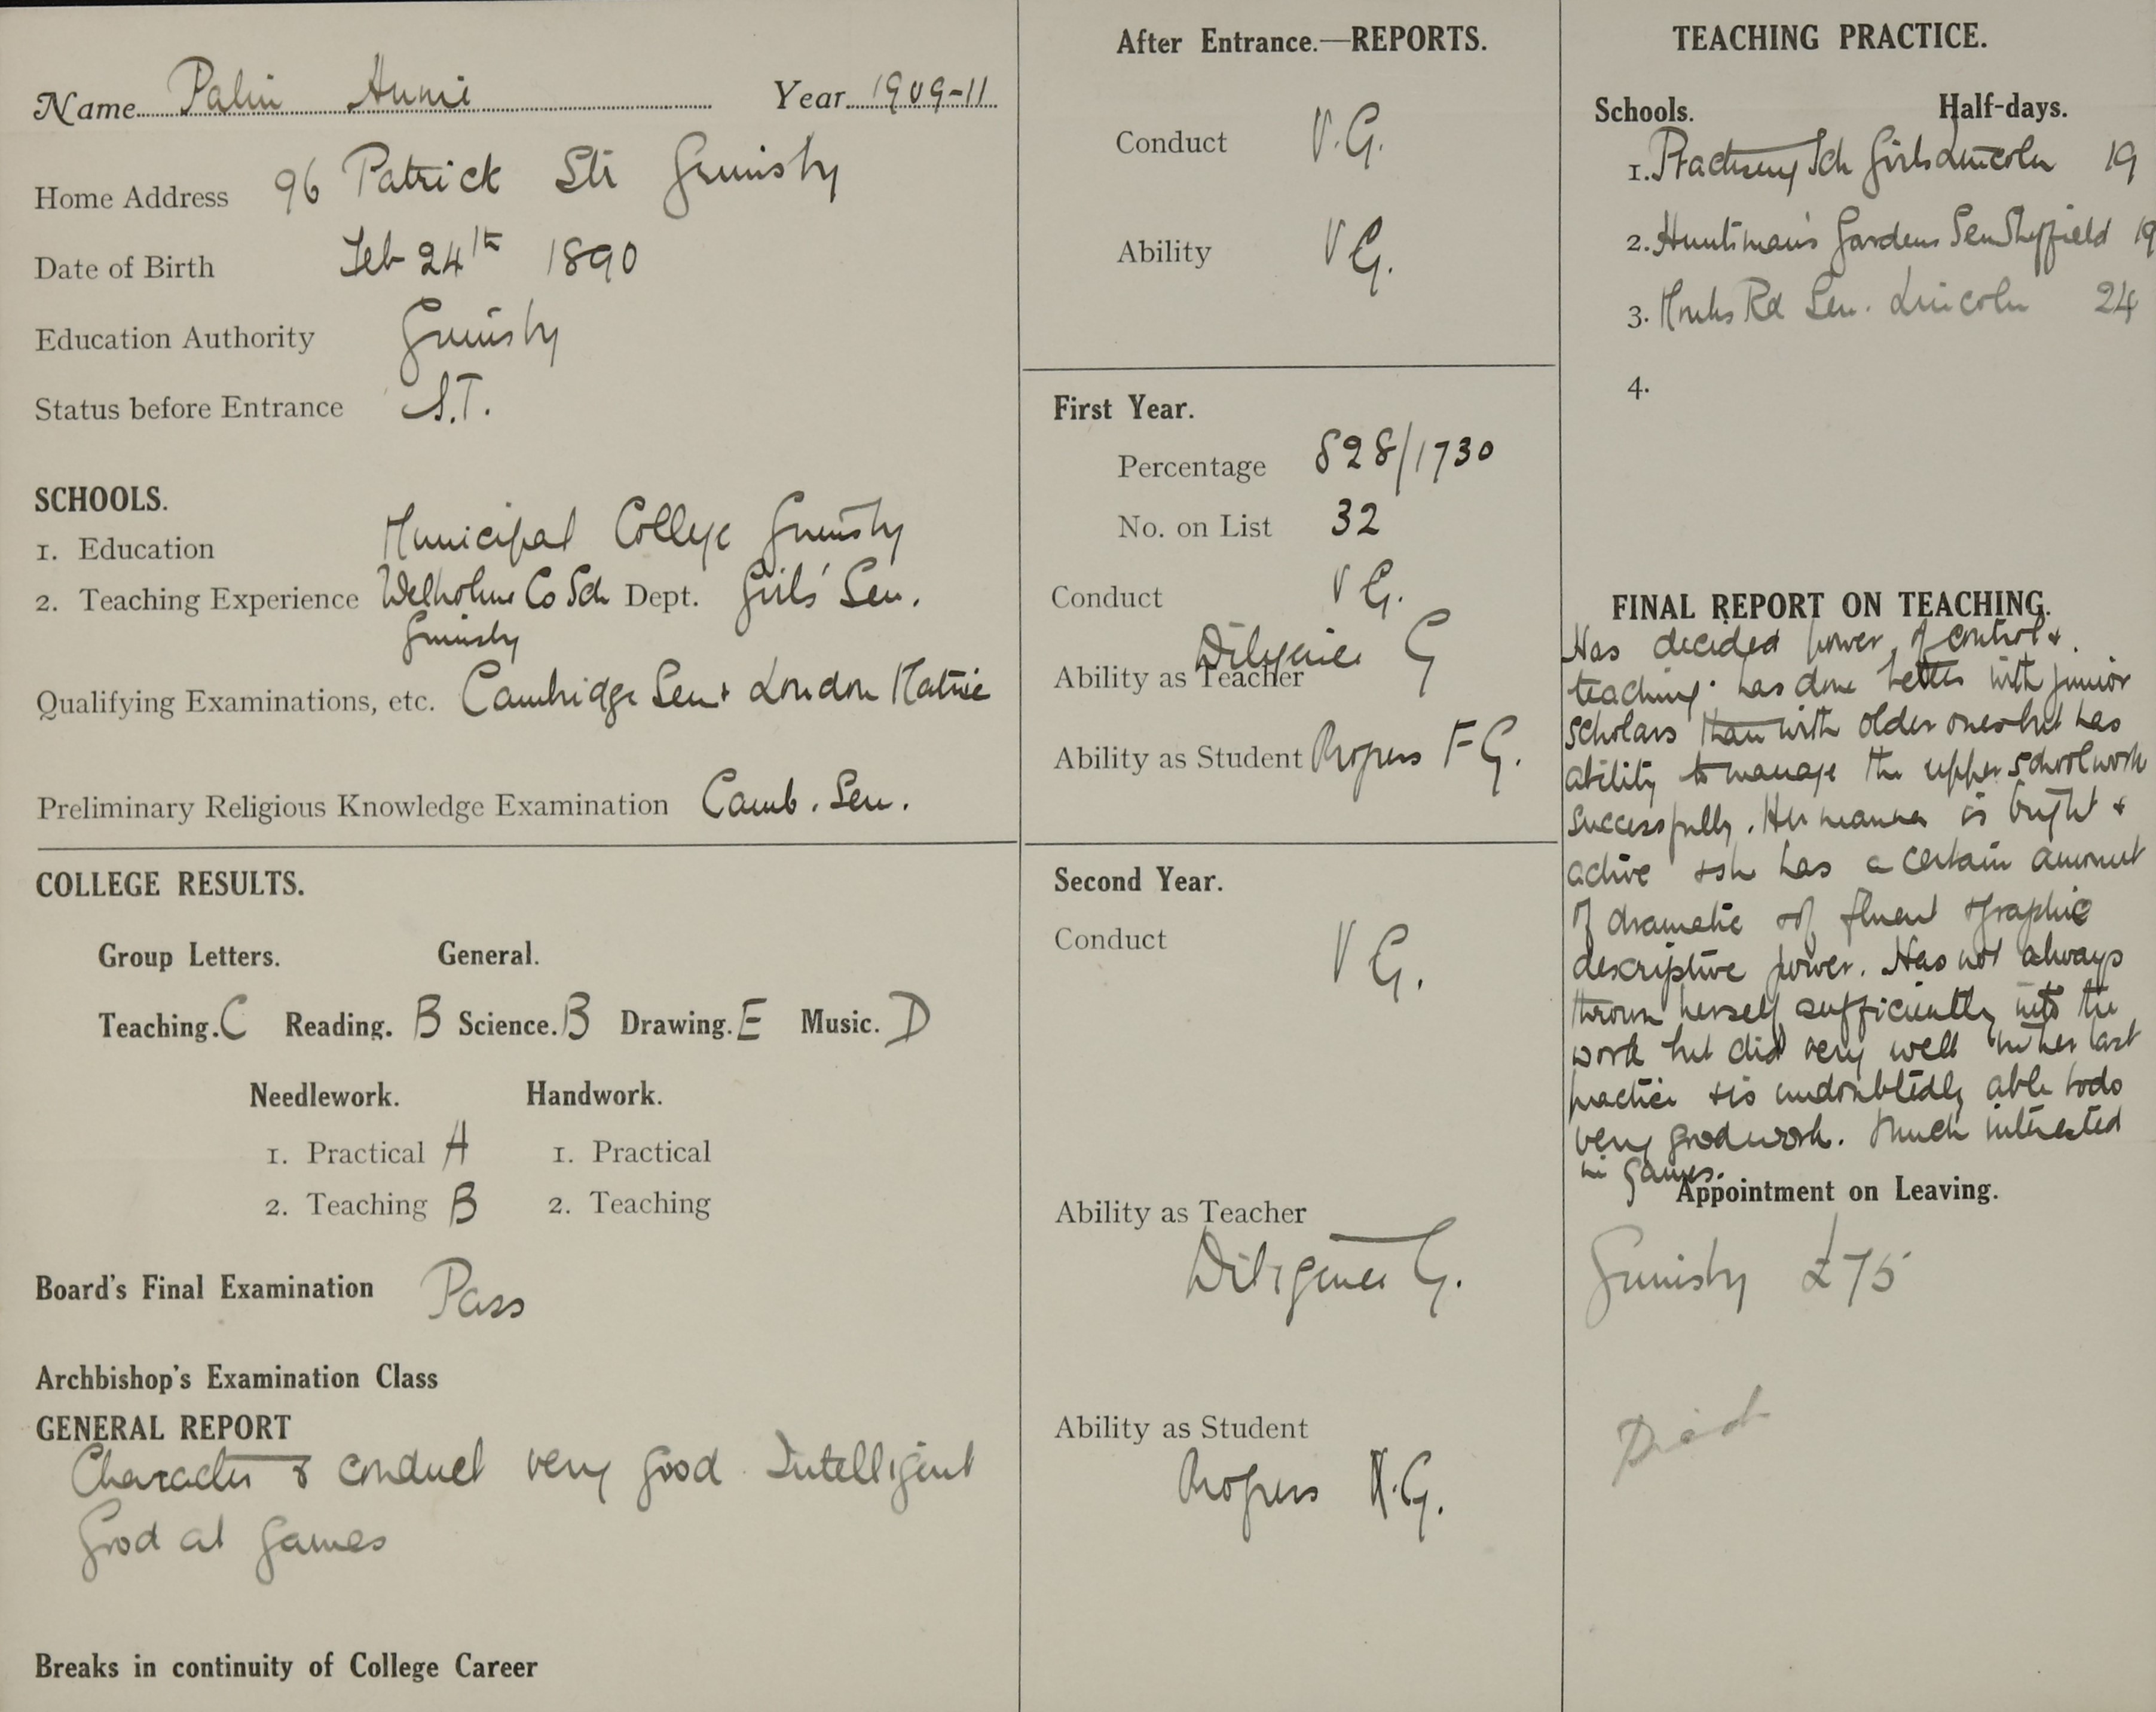 Name Palin Annie Year 1909-11
Home Address 96 Patrick Str Grimsby
Date of Birth Feb 24th 1890
Education Authority Grimsby
Status before Entrance S.T.
SCHOOLS.
1. Education Municipal College Grimsby
2. Teaching Experience Welholme Co Sch Dept. Girls' Sen.
Grimsby
Qualifying Examinations, etc. Cambridge Sen + London Matric
Preliminary Religious Knowledge Examination Camb. Sen.
COLLEGE RESULTS.
Group Letters. General.
Teaching. C Reading. B Science. B Drawing. E Music. D
Needlework. Handwork.
1. Practical A 1. Practical
2. Teaching B 2. Teaching
Board's Final Examination Pass
Archbishop's Examination Class
GENERAL REPORT
Character & conduct very good Intelligent
Good at games
Breaks in continuity of College Career
After Entrance.—REPORTS.
Conduct V.G.
Ability V G.
First Year.
Percentage 828/1730
No. on List 32
Conduct V G.
Diligence G
Ability as Teacher
Ability as Student Progress F G.
Second Year.
Conduct V G.
Ability as Teacher
Diligence G.
Ability as Student
Progress G.
TEACHING PRACTICE.
Schools. Half-days.
1. Practising Sch Girls Lincoln 19
2. Huntsman's Gardens Sen Sheffield 19
3. Monks Rd Sen. Lincoln 24
4.
FINAL REPORT ON TEACHING.
Has decided power of control &
teaching: has done better with junior
scholars than with older ones but has
ability to manage the upper school work
successfully. Her manner is bright &
active & she has a certain amount
of dramatic & of fluent & graphic
descriptive power. Has not always
thrown herself sufficiently into the
work but did very well in her last
practice & is undoubtedly able to do
very good work. Much interested
in games.
Appointment on Leaving.
Grimsby £75
Died